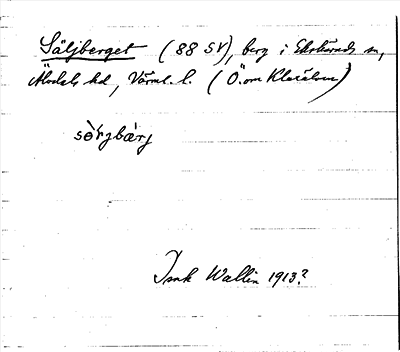 Säljberget (88 SV), berg i Ekshärads sn,
Älvdals hd, Värml. l. (Ö. om Klarälven)
sò̀rjbærj
Isak Wallin 1913?